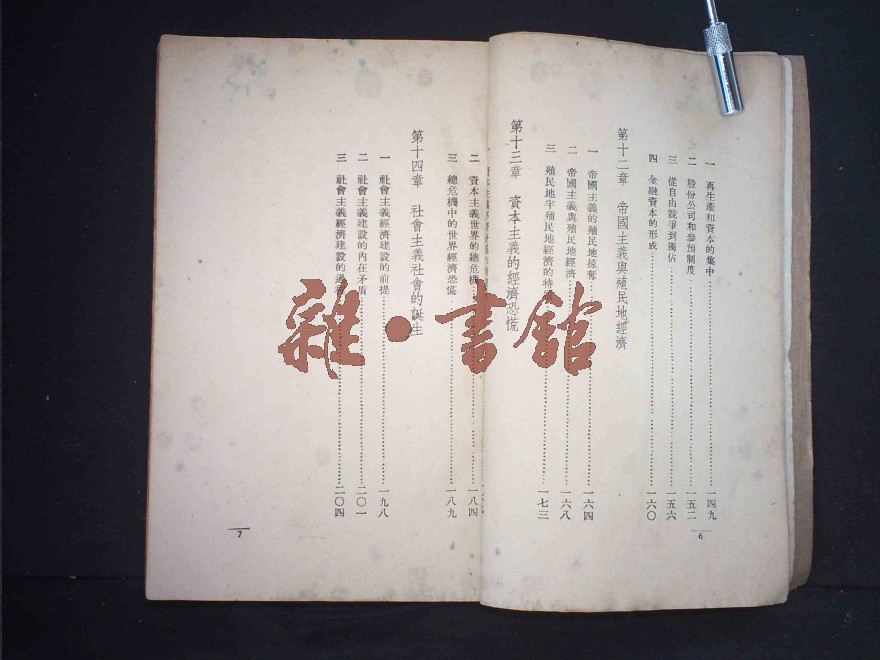 一 再生產和資本的集中 一四九
二 股份公司和參預制度 一五二
三 從自由競爭到獨佔 一五六
四 金融資本的形成 一六〇
第十二章 帝國主義與殖民地經濟
一 帝國主義的殖民地掠奪 一六四
二 帝國主義與殖民地經濟 一六八
三 殖民地半殖民地經濟的特 一七三
第十三章 資本主義的經濟恐慌
6
二 資本主義世界的總危機 一八四
三 總危機中的世界經濟恐慌 一八九
第十四章 社會主義社會的誕生
一 社會主義經濟建設的前提 一九八
二 社會主義建設的內在矛盾 二〇一
三 社會主義經濟建設的 二〇四
7
雜·書館